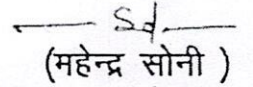 Sd.
(महेन्द्र सोनी )